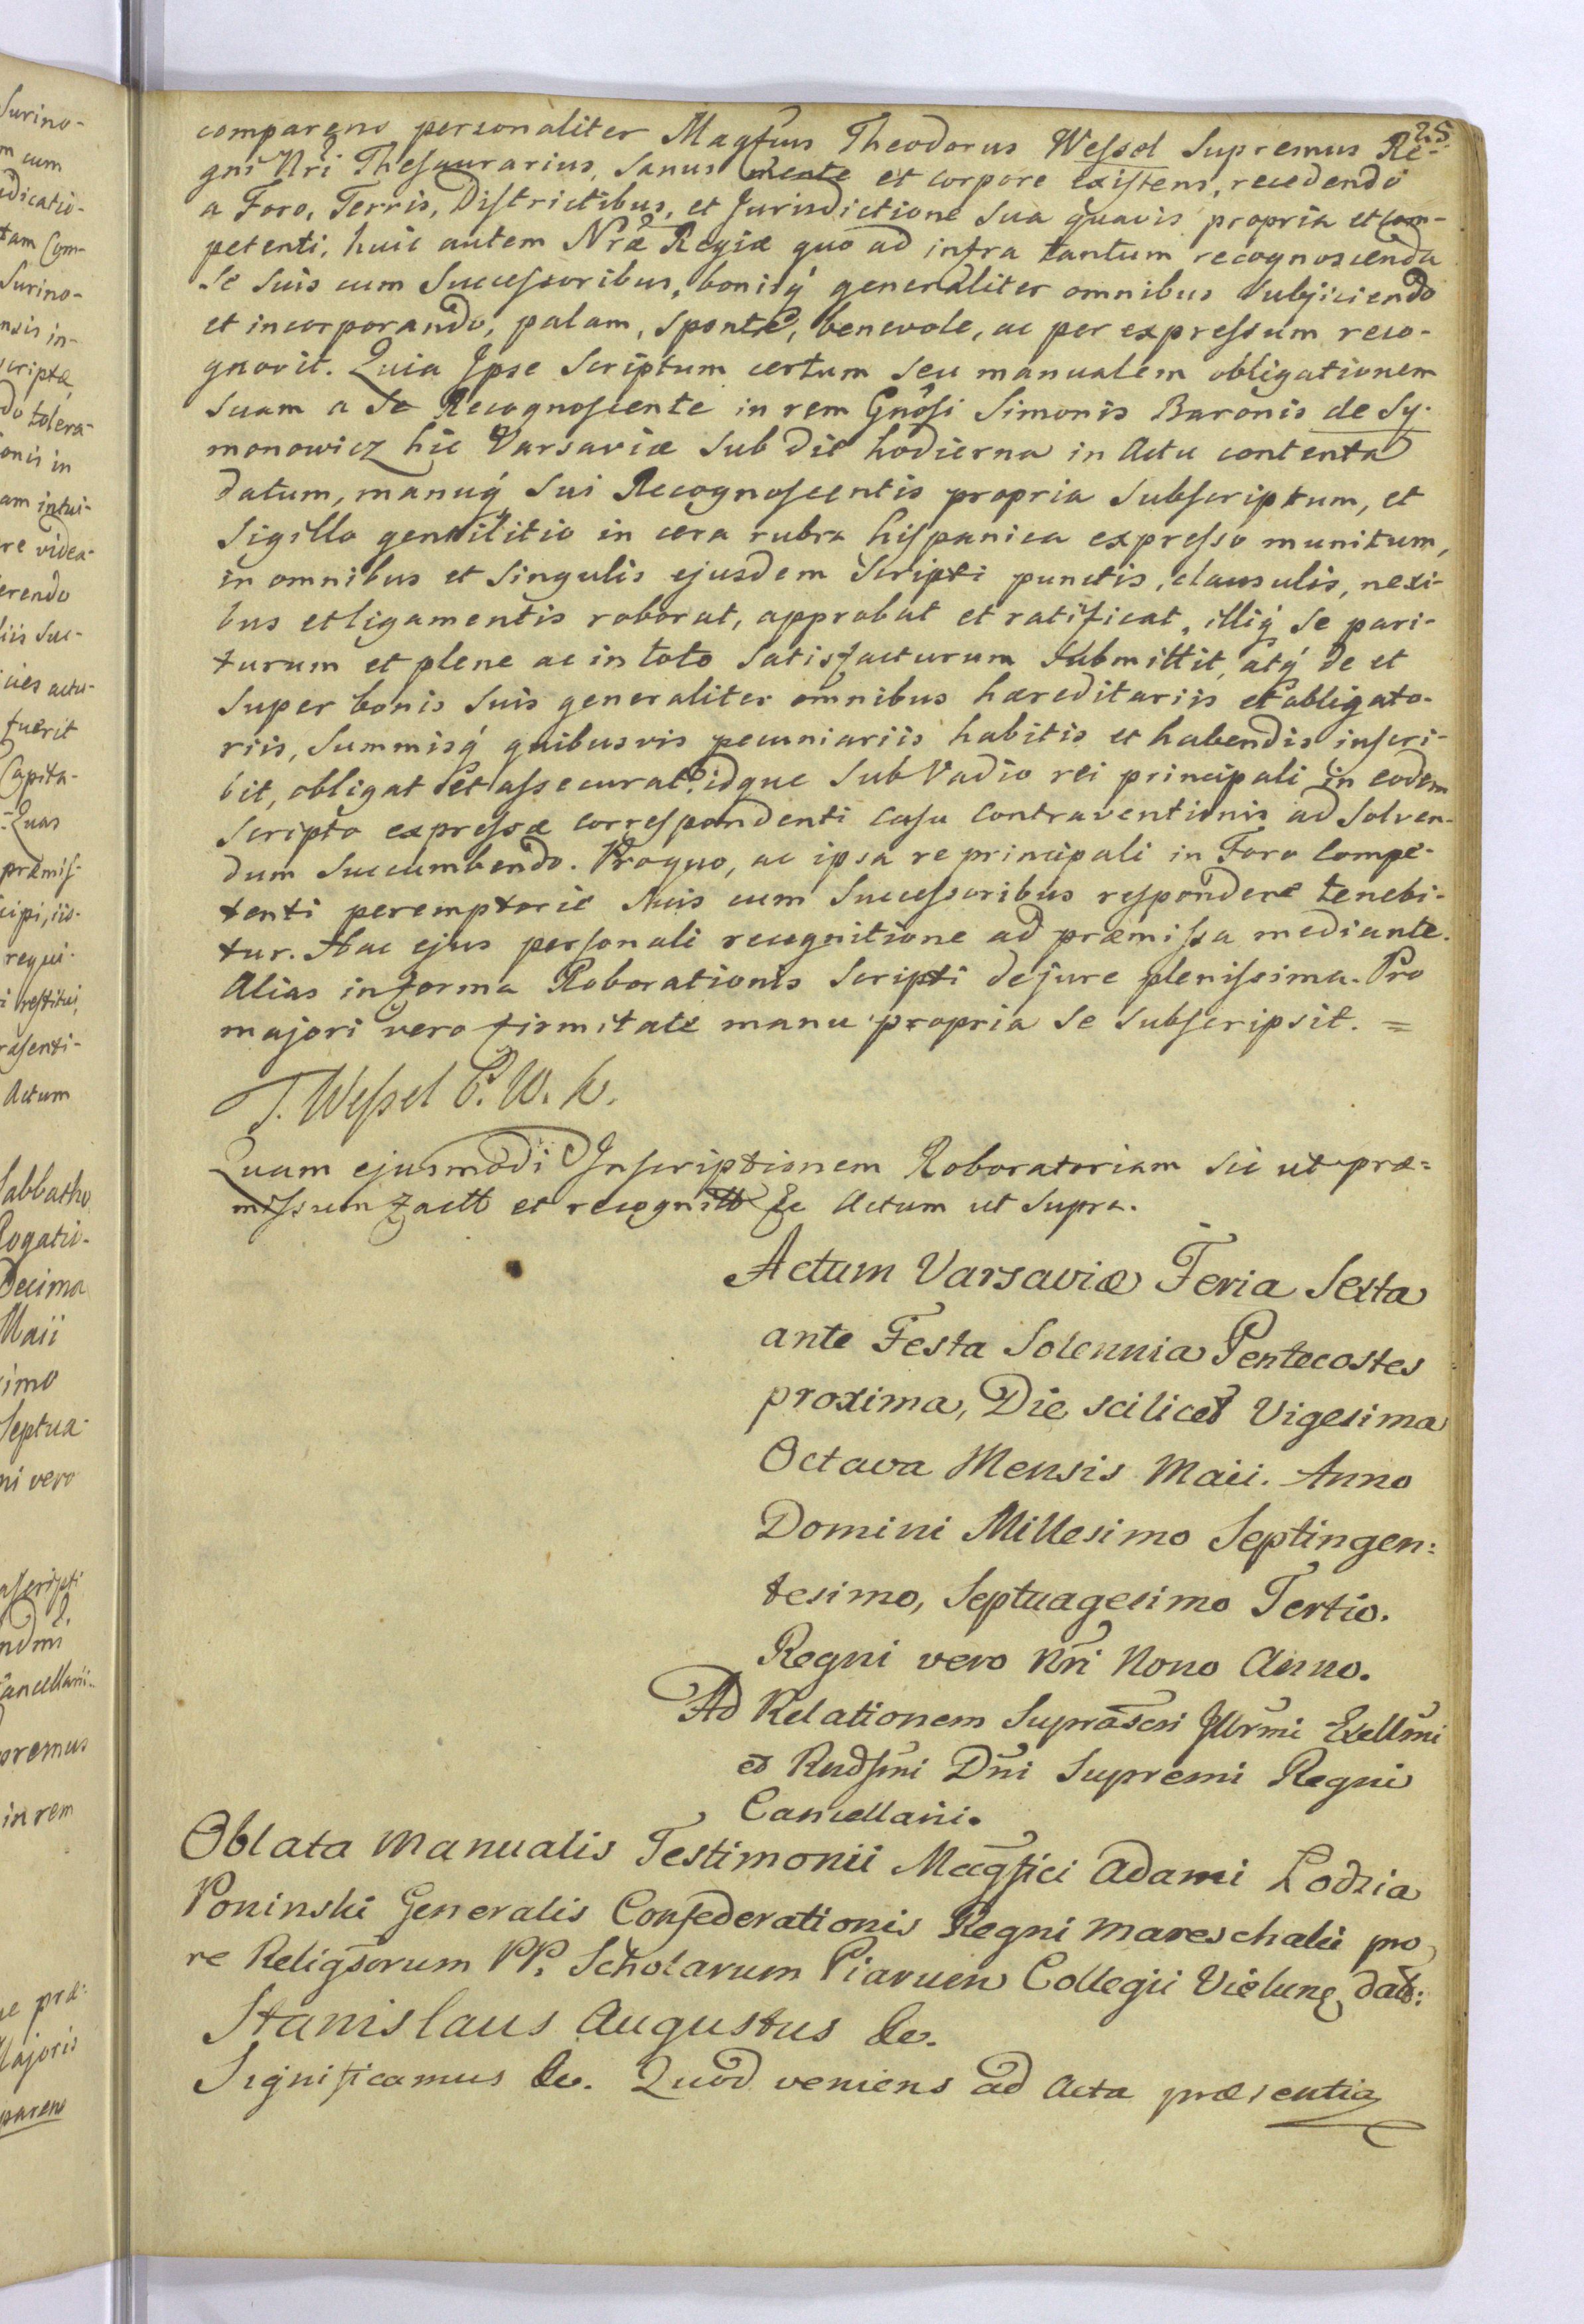 25
comparens personaliter Magfcus Theodorus Wessel Supremus Re-
gni Nri Thesaurarius, Sanus mente et corpore existens, recedendo
a Foro, Terris, Districtibus, et Jurisdictione sua quavis propria et com-
petenti, huic autem Nrae Regiae quo ad infra tantum recognoscenda
se suis cum Successoribus, bonisq́ generaliter omnibus subjiciendo
et incorporando, palam, sponte, benevole, ac per expressum reco-
gnovit. Quia Ipse Scriptum certum seu manualem obligationem
suam a se Recognoscente in rem Gnosi Simonis Baronis de Sy-
monowicz hic Varsaviae sub die hodierna in Actu contenta
datum, manuq́ sui Recognoscentis propria subscriptum, et
Sigillo gentilitio in cera rubra hispanica expresso munitum,
in omnibus et singulis ejusdem Scripti punctis, clausulis, nexi-
bus et ligamentis roborat, approbat et ratificat, illiq́ se pari-
turum et plene ac in toto satisfacturum submittit, atq́ de et
super bonis suis generaliter omnibus haereditariis et obligato-
riis, Summisq́ quibusvis pecuniariis habitis et habendis inscri-
bit, obligat et assecurat: idque sub Vadio rei principali in eodem
Scripto expressae correspondenti casu contraventionis ad solven-
dum succumbendo. Pro quo, ac ipsa re principali in Foro Compe-
tenti peremptorie suis cum Successoribus respondere tenebi-
tur. Hac ejus personali recognitione ad praemissa mediante.
Alias in forma Roborationis Scripti de jure plenissima. Pro
majori vero firmitate manu propria se subscripsit. =
T. Wessel P. W. K.
Quam ejusmodi Inscriptionem Roboratoriam sic ut prae=
missum factt et recognitt &c Actum ut supra.
Actum Varsaviae Feria Sexta
ante Festa Solennia Pentecostes
proxima, Die scilicet Vigesima
Octava Mensis Maii. Anno
Domini Millesimo Septingen:
tesimo, Septuagesimo Tertio.
Regni vero Nri Nono Anno.
Ad Relationem Suprascri Illrmi Exellmi
et Rndsmi Dni Supremi Regni
Cancellarii.
Oblata Manualis Testimonii Magfici Adami Lodzia
Poninski Generalis Confederationis Regni Mareschalci pro
re Religsorum PP. Scholarum Piarum Collegii Vielung dat:
Stanislaus Augustus &c.
Significamus &c. Quod veniens ad Acta praesentia